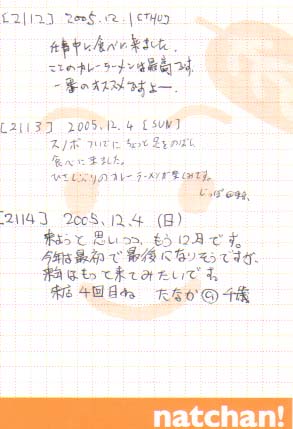 [2112] 2005.12.1 [THU]
仕事中に食べに来ました。
ここのカレーラーメンは最高です。
一番のオススメですよー。
[2113] 2005.12.4 [SUN]
スノボ ついでに ちょっと足をのばし
食べに来ました。
ひさしぶりのカレーラーメンが楽しみです。
[2114] 2005.12.4 (日)
来ようと思いつつ、もう12月です。
今年は最初で最後になりそうですが、
来年はもっと来てみたいです。
来店4回目ね たなか 千歳
natchan!